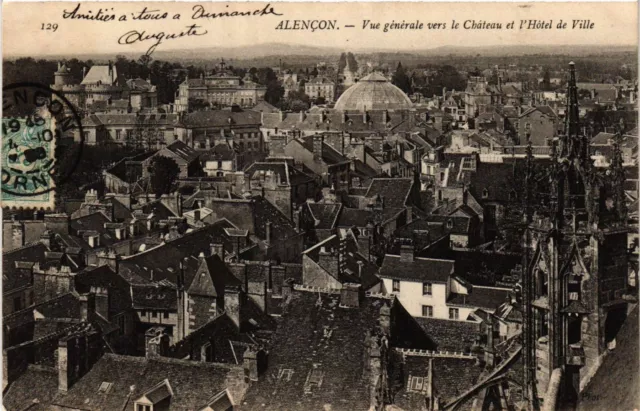 129
Amitiés à tous à Dimanche
Auguste
ALENÇON. – Vue générale vers le Château et l'Hôtel de Ville
ALENÇON
ORNE